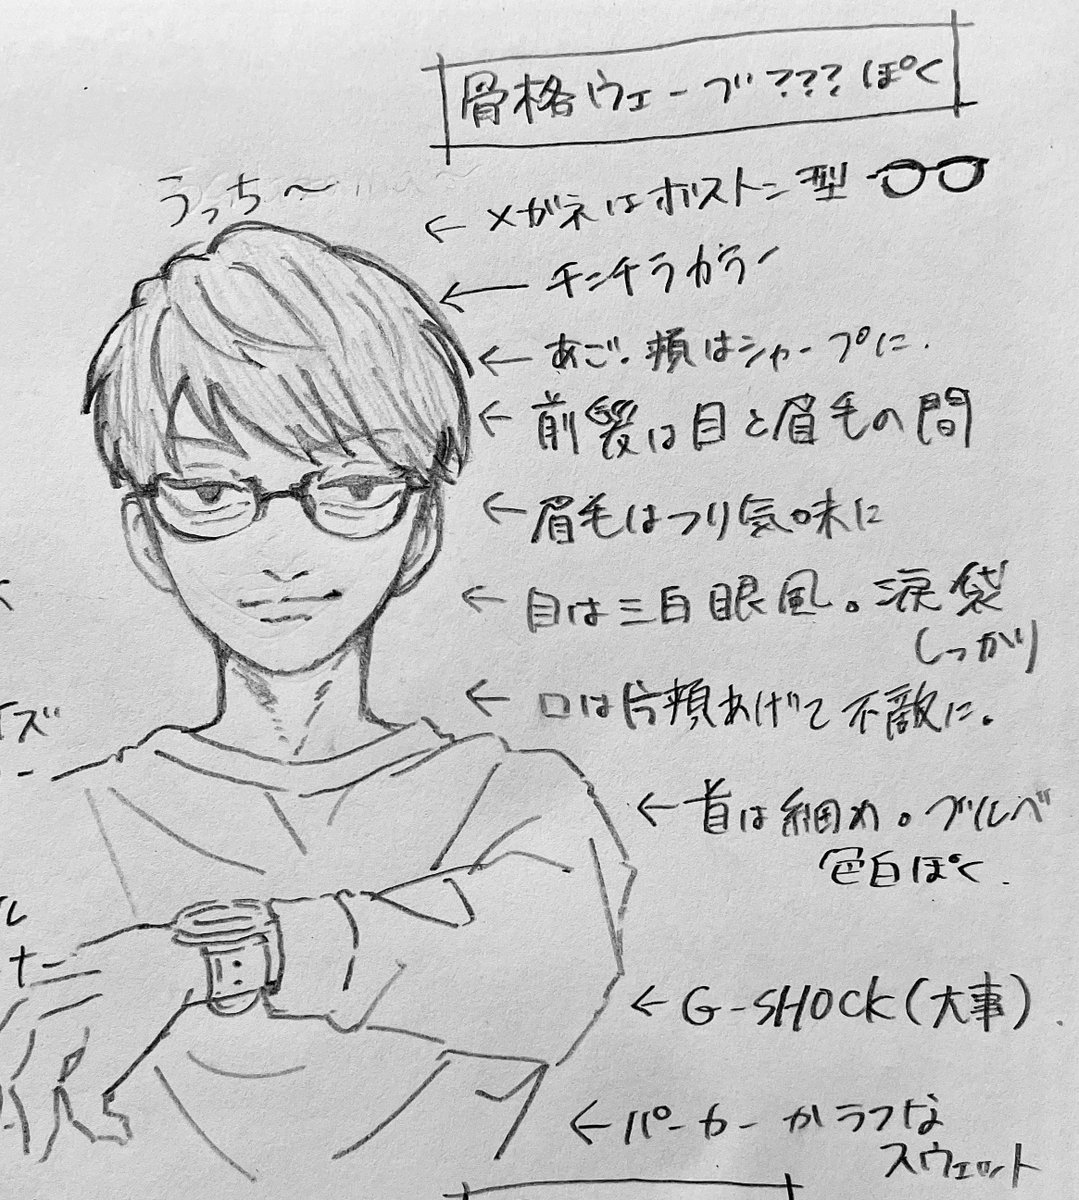 骨格ウェーブ???ぽく
うっち〜
← メガネはボストン型
← チンチラカラー
← あご、頬はシャープに.
← 前髪は目と眉毛の間
← 眉毛はつり気味に
← 目は三白眼風。涙袋
しっかり
← 口は片頬あげて不敵に。
← 首は細め。ブルベ
色白ぽく.
← G-SHOCK(大事).
← パーカーかラフな
スウェット
ズ
ル
ナー